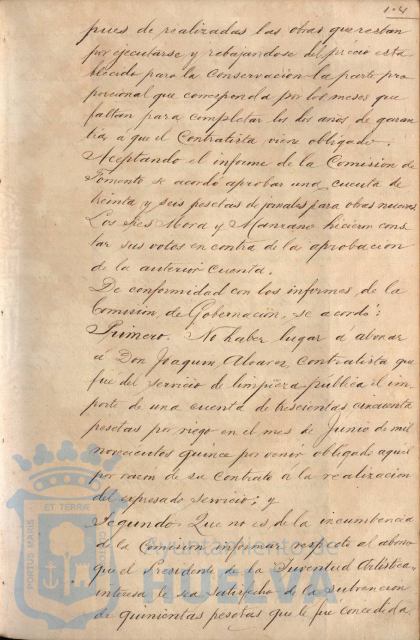 pues de realizadas las obras que restan
por ejecutarse y rebajandose del precio esta
blecido para la Conservacion la parte pro
porcional que corresponda por los meses que
faltan para completar los dos años de garan
tia, a que el Contratista viene obligado.
Aceptando el informe de la Comision de
Fomento se acordó aprobar una cuenta de
treinta y seis pesetas de jornales para obras nuevas
Los Sres Mora y Manzano hicieron cons
tar sus votos en contra de la aprobacion
de la anterior cuenta.
De conformidad con los informes de la
Comision de Gobernacion, se acordó:
Primero. No haber lugar á abonar
á Don Joaquin Alvarez, contratista que
fué del servicio de limpieza publica el im
porte de una cuenta de trescientas cincuenta
pesetas por riego en el mes de Junio de mil
novecientos quince por venir obligado aquel
por razon de su Contrato á la realizacion
del expresado servicio; y
Segundo. Que no es de la incumbencia
de la Comision informar respecto al abono
que el Presidente de la Juventud Artistica,
interesa le sea satisfecho de la subvencion
de quinientas pesetas que le fue concedida
PORTUS MARIS ET TERRÆ
Ayuntamiento de
HUELVA